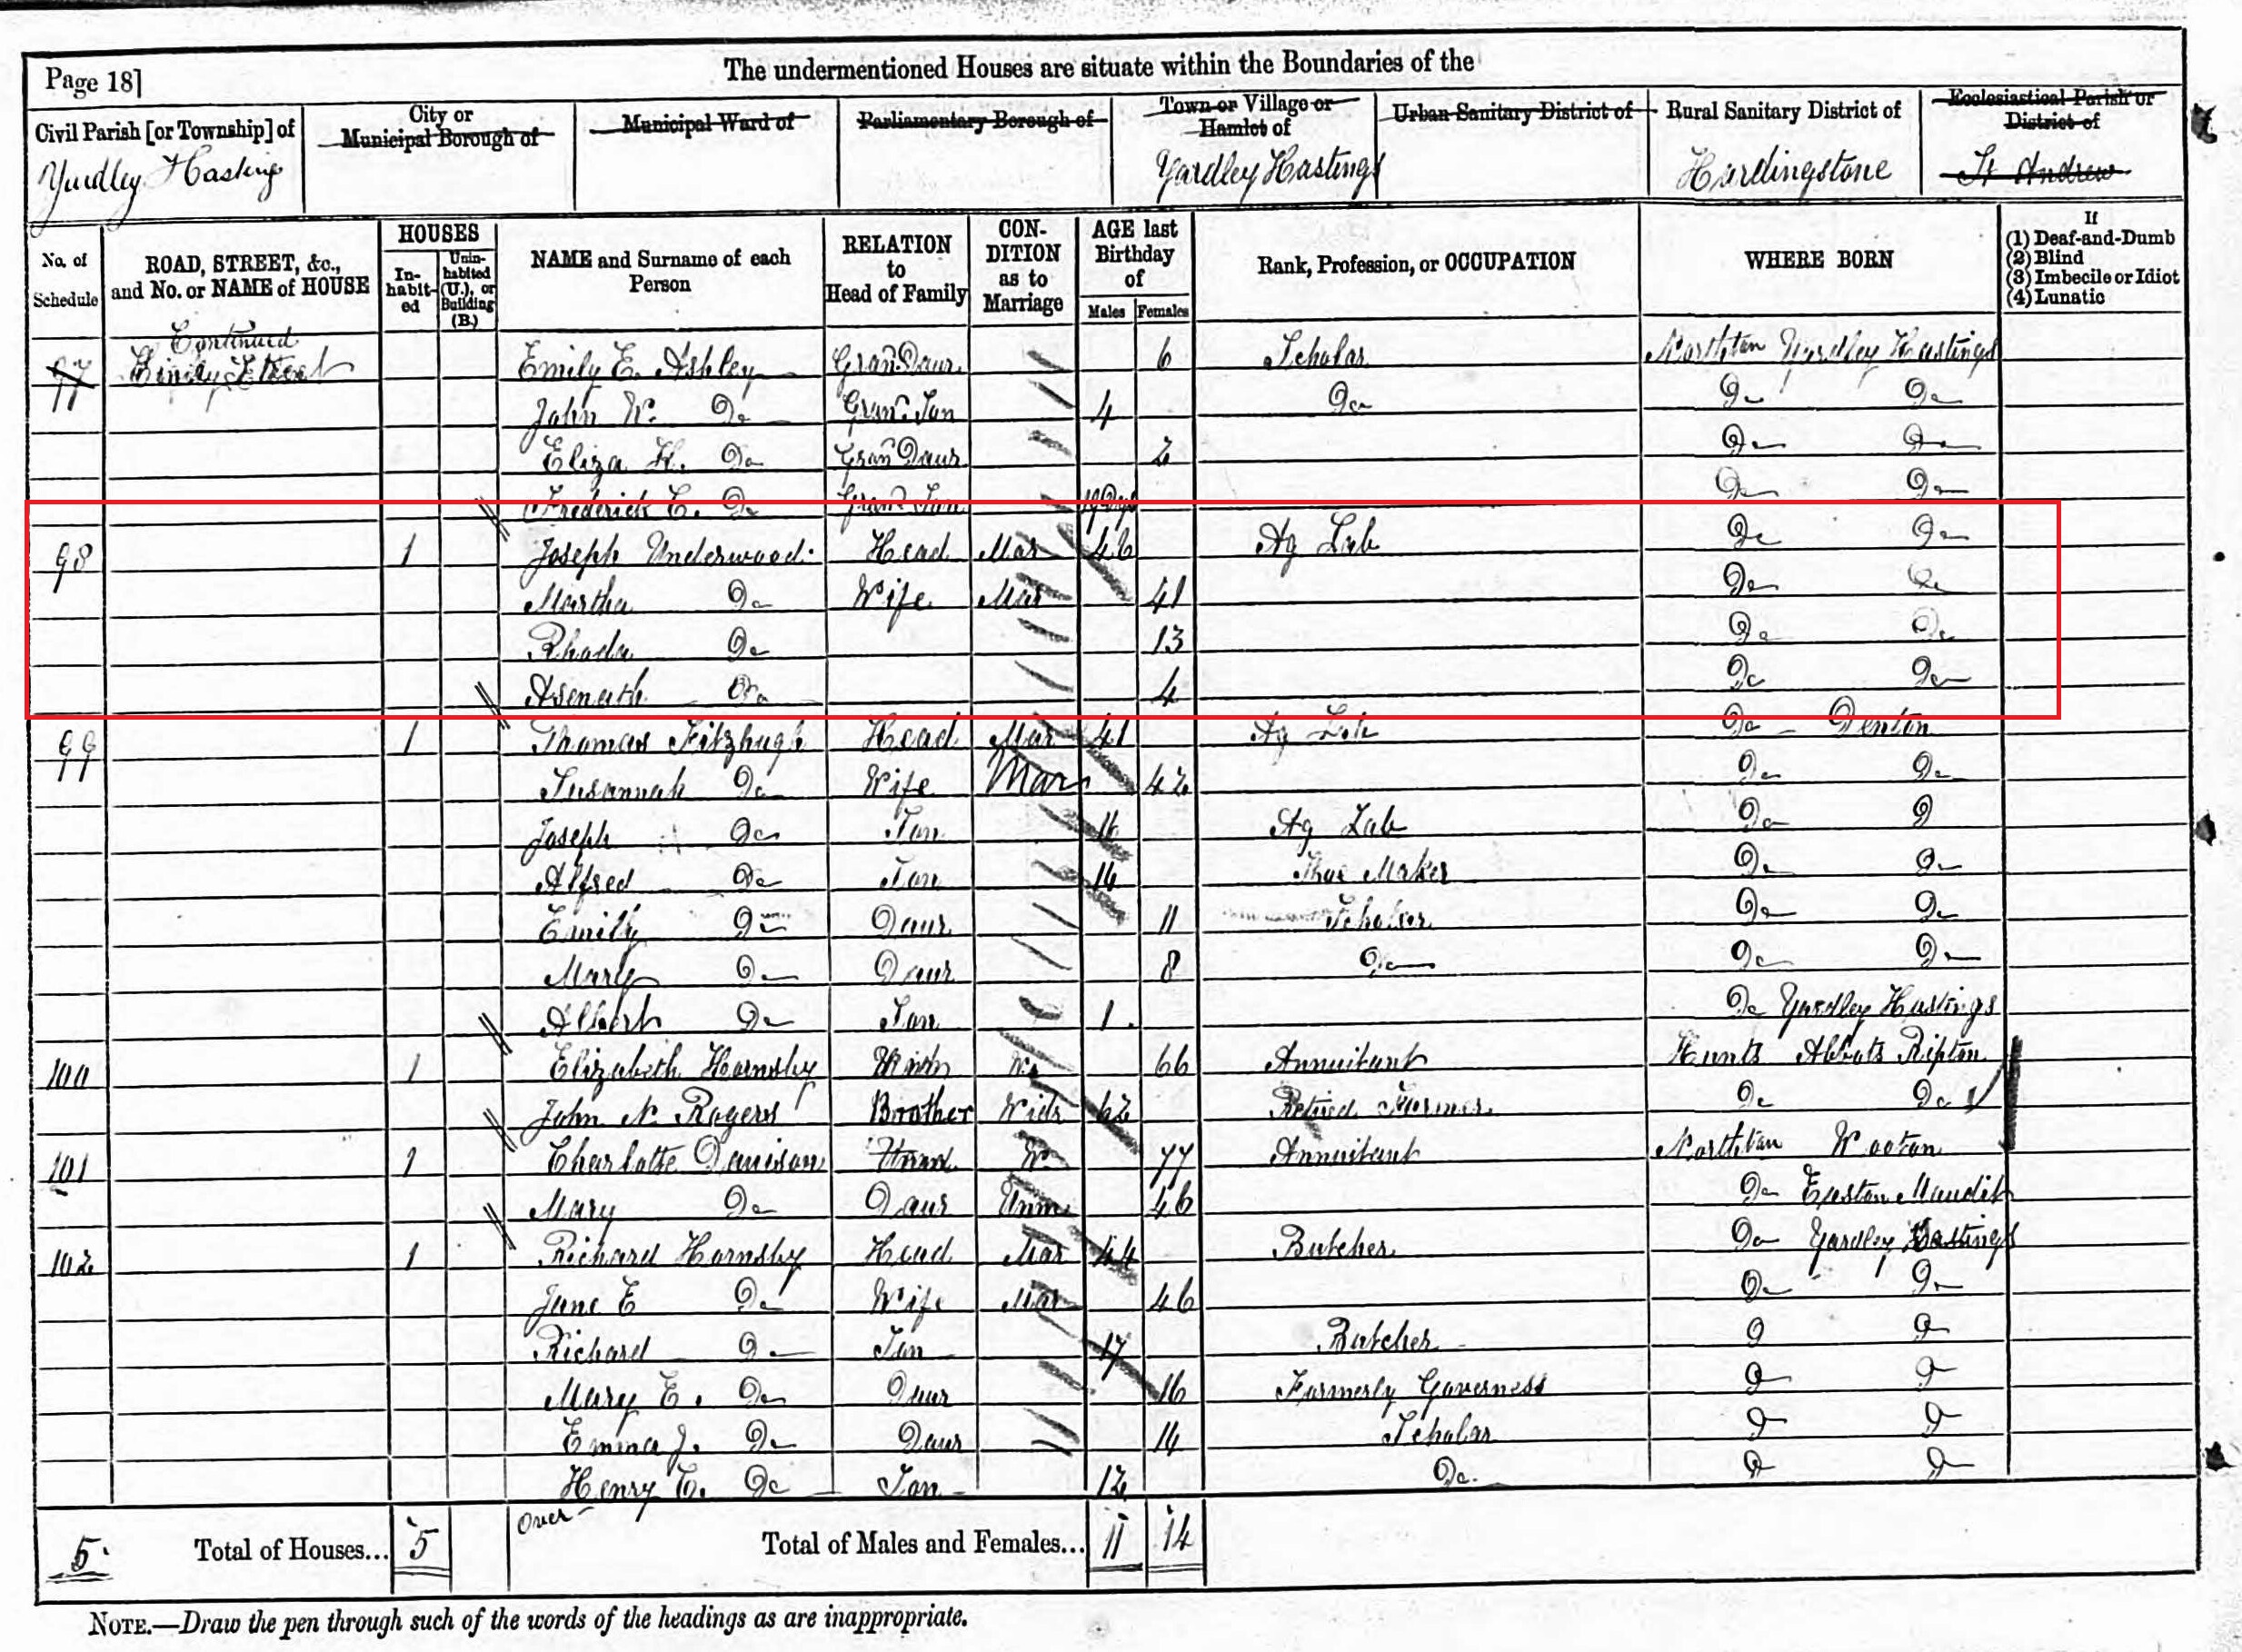 Page 18]
The undermentioned Houses are situate within the Boundaries of the
Civil Parish [or Township] of
City or Municipal Borough of
Municipal Ward of
Parliamentary Borough of
Town or Village or Hamlet of
Urban Sanitary District of
Rural Sanitary District of
Ecclesiastical Parish or District of
Yardley Hastings
Yardley Hastings
Hardingstone
St Andrew
No. of Schedule
ROAD, STREET, &c., and No. or NAME of HOUSE
HOUSES
In-habit-ed
Unin-habited (U.), or Building (B.)
NAME and Surname of each Person
RELATION to Head of Family
CON-DITION as to Marriage
AGE last Birthday of
Males
Females
Rank, Profession, or OCCUPATION
WHERE BORN
If
(1) Deaf-and-Dumb
(2) Blind
(3) Imbecile or Idiot
(4) Lunatic
Continued
97 Street Emily E. Ashley Gran Daur 6 Scholar Northton Yardley Hastings
John W. Do Gran Son 4 Do Do Do
Eliza H. Do Gran Daur 2 Do Do
Frederick C. Do Gran Son 19 Dys Do Do
98 1 Joseph Underwood Head Mar 46 Ag Lab Do Do
Martha Do Wife Mar 41 Do Do
Rhoda Do 13 Do Do
Asenath Do 4 Do Do
99 1 Thomas Fitzhugh Head Mar 41 Ag Lab Do Denton
Susannah Do Wife Mar 42 Do Do
Joseph Do Son 16 Ag Lab Do D
Alfred Do Son 14 Shoe Maker Do Do
Emily Do Daur 11 Scholar Do Do
Mary Do Daur 8 Do Do Do
Albert Do Son 1 Do Yardley Hastings
100 1 Elizabeth Hornsby W 66 Annuitant Hunts Abbots Ripton
John N. Rogers Brother Widr 62 Retired Farmer Do Do
101 1 Charlotte Davison W 77 Annuitant Northton Wooton
Mary Do Daur Unm 46 Do Easton Maudit
102 1 Richard Hornsby Head Mar 44 Butcher Do Yardley Hastings
Jane E Do Wife Mar 46 Do Do
Richard Do Son 17 Butcher D D
Mary E. Do Daur 16 Formerly Governess D D
Emma J. Do Daur 14 Scholar D D
Henry C. Do Son 12 Do D D
over
5 Total of Houses... 5 Total of Males and Females... 11 14
NOTE.—Draw the pen through such of the words of the headings as are inappropriate.